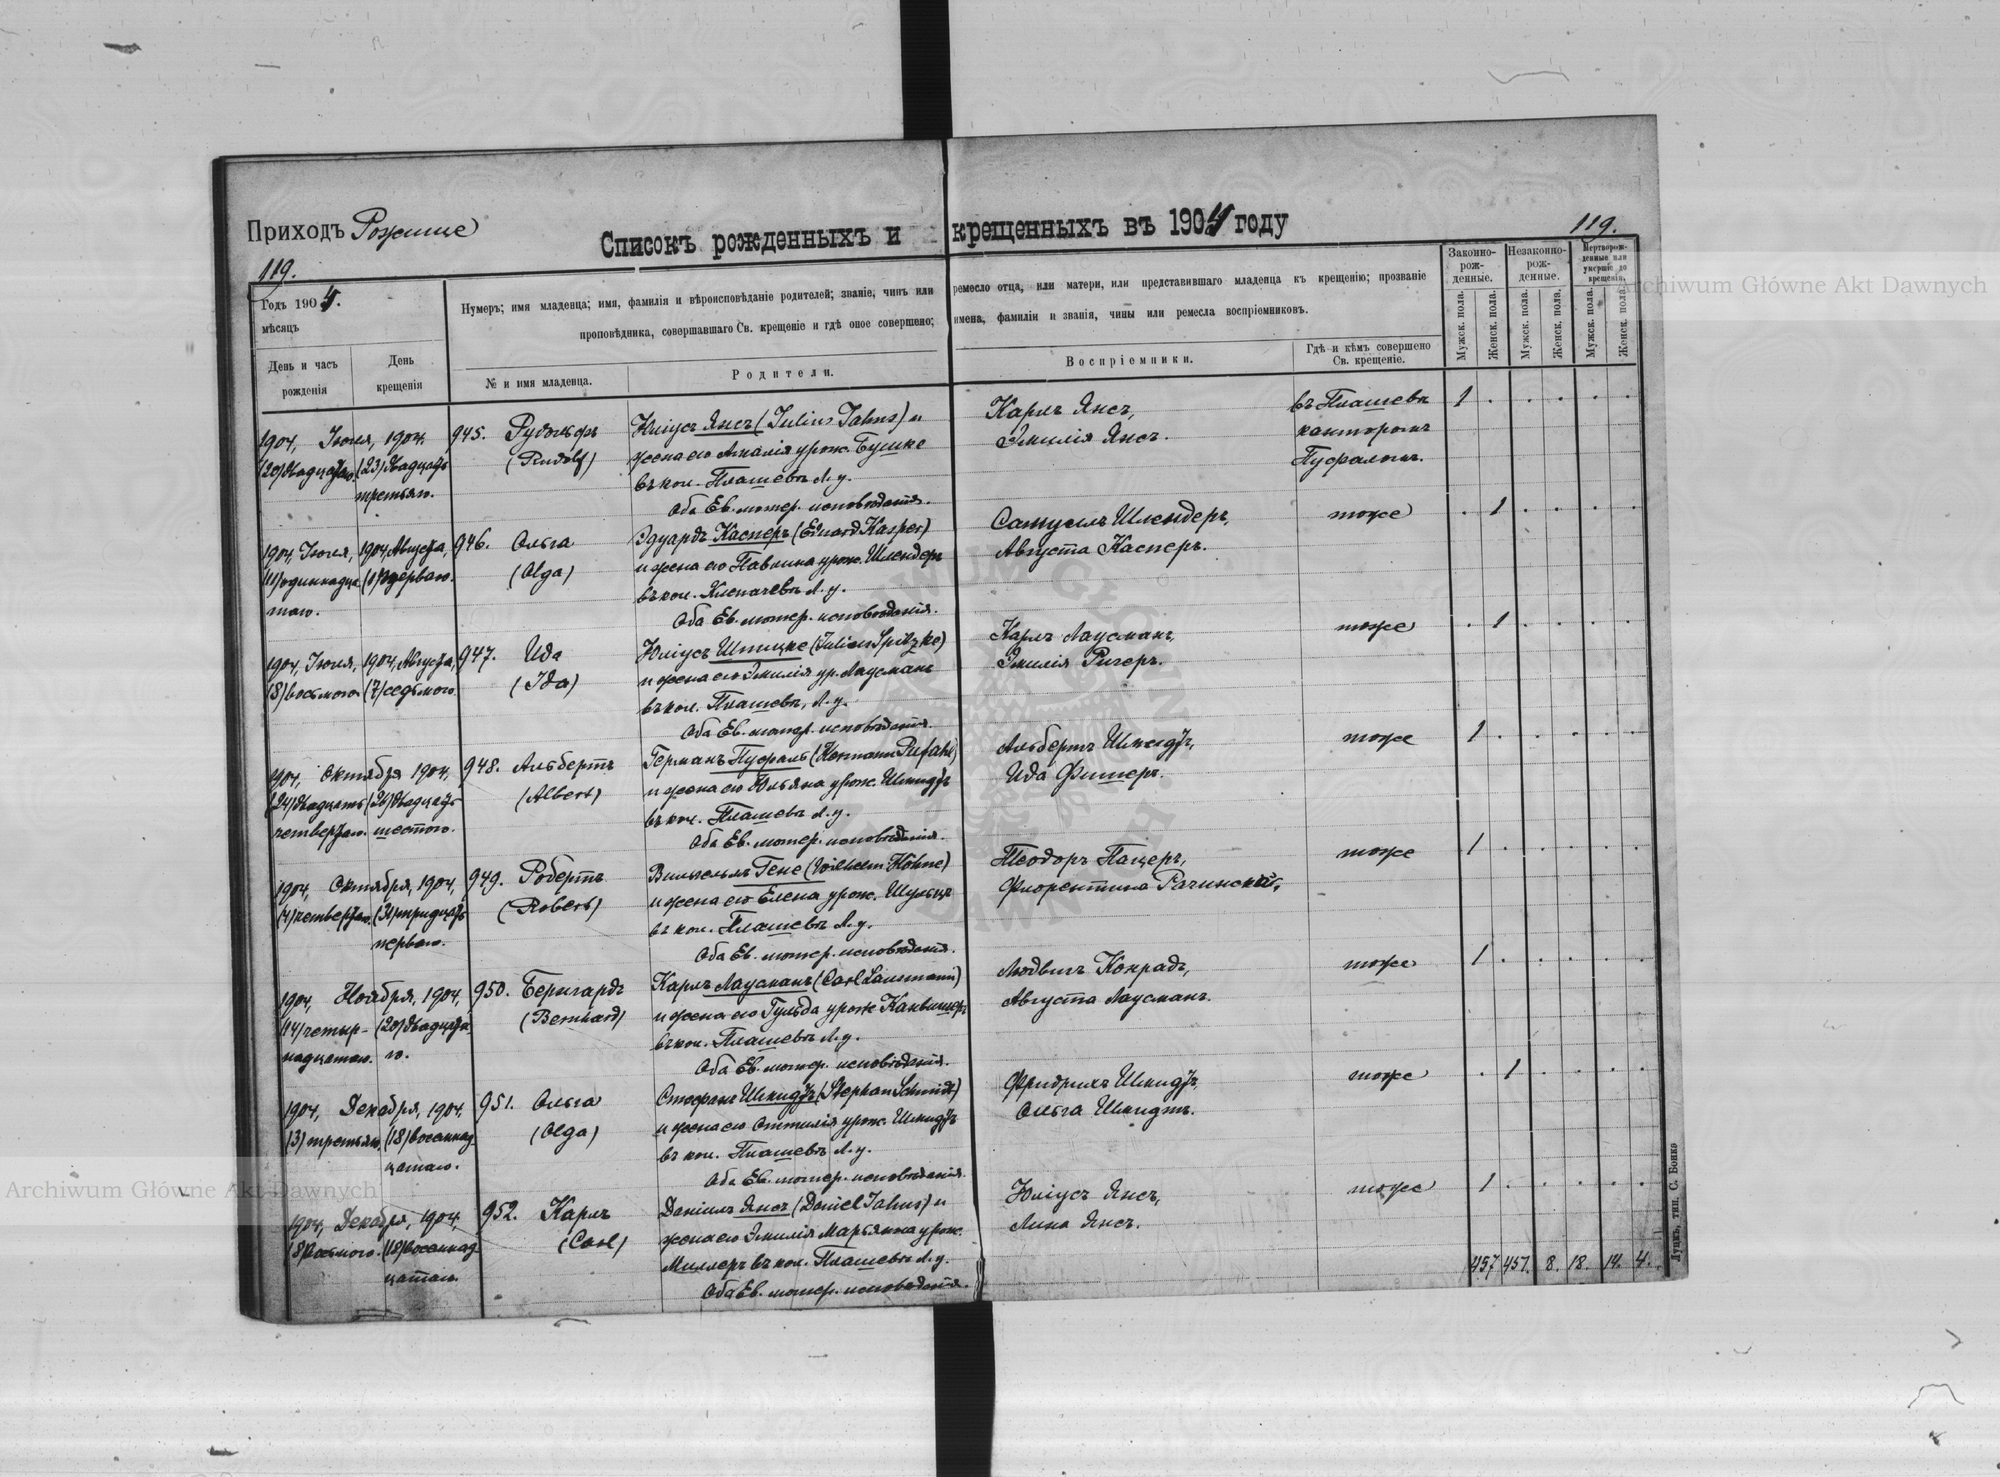 Приходъ Рожище
Списокъ рожденныхъ и крещенныхъ въ 1904 году
119.
119.
Годъ 1904.
мѣсяцъ
День и часъ рожденія
День крещенія
Нумеръ; имя младенца; имя, фамилія и вѣроисповѣданіе родителей; званіе, чинъ или ремесло отца, или матери, или представившаго младенца къ крещенію; прозваніе
проповѣдника, совершавшаго Св. крещеніе и гдѣ оное совершено; имена, фамиліи и званія, чины или ремесла воспріемниковъ.
№ и имя младенца.
Родители.
Воспріемники.
Гдѣ и кѣмъ совершено Св. крещеніе.
Законно-рож-денные.
Незаконно-рож-денные.
Мертворож-денные или умершіе до крещенія.
Мужск. пола.
Женск. пола.
Мужск. пола.
Женск. пола.
Мужск. пола.
Женск. пола.
1904, Іюля, 1904, 945. Рудольфъ Юліусъ Янсъ (Julius Jahns) и Карлъ Янсъ, въ Плашевѣ 1
(20) двадцатаго. (23) двадцать (Rudolf) жена его Амалія урож. Бушке Эмилія Янсъ. канторомъ
третьяго. въ кол. Плашевѣ Л. у. Пуфалемъ.
Оба Ев. лютер. исповѣданія.
1904, Іюля, 1904, Августа, 946. Ольга Эдуардъ Касперъ (Eduard Kasper) Самуилъ Шлендеръ, тоже 1
(11) одиннадца- (1) перваго. (Olga) и жена его Павлина урож. Шлендеръ Августа Касперъ.
таго. въ кол. Клепачевѣ Л. у.
Оба Ев. лютер. исповѣданія.
1904, Іюля, 1904, Августа, 947. Ида Юліусъ Шпицке (Julius Spitzke) Карлъ Лаусманъ, тоже 1
(8) восьмого. (7) седьмого. (Ida) и жена его Эмилія ур. Лаусманъ Эмилія Ригеръ.
въ кол. Плашевѣ, Л. у.
Оба Ев. лютер. исповѣданія.
1904, Октября 1904, 948. Альбертъ Германъ Пуфаль (Hermann Pufahl) Альбертъ Шмидтъ, тоже 1
(24) двадцать (26) двадцать (Albert) и жена его Юльяна урож. Шмидтъ Ида Фишеръ.
четвертаго. шестого. въ кол. Плашевѣ Л. у.
Оба Ев. лютер. исповѣданія.
1904, Октября, 1904, 949. Робертъ Вильгельмъ Гене (Wilhelm Höhne) Теодоръ Пацеръ, тоже 1
(4) четвертаго. (31) тридцать (Robert) и жена его Елена урож. Шульцъ Флорентина Рачинская,
перваго. въ кол. Плашевѣ Л. у.
Оба Ев. лютер. исповѣданія.
1904, Ноября, 1904, 950. Бернгардъ Карлъ Лаусманъ (Carl Lausmann) Людвигъ Конрадъ, тоже 1
(14) четыр- (20) двадцата- (Bernhard) и жена его Гульда урож. Августа Лаусманъ.
надцатаго. го. въ кол. Плашевѣ Л. у.
Оба Ев. лютер. исповѣданія.
1904, Декабря, 1904 951. Ольга Стефанъ Шмидтъ (Stephan Schmidt) Фридрихъ Шмидтъ, тоже 1
(3) третьяго. (18) восемнад- (Olga) и жена его Оттилія урож. Шмидтъ Ольга Шмидтъ.
цатаго. въ кол. Плашевѣ Л. у.
Оба Ев. лютер. исповѣданія.
1904, Декабря, 1904, 952. Карлъ Даніилъ Янсъ (Daniel Jahns) и Юліусъ Янсъ, тоже 1
(8) восьмого. (18) восемнад- (Carl) жена его Эмилія Марьянна урож. Лина Янсъ.
цатаго. Миллеръ въ кол. Плашевѣ Л. у.
Оба Ев. лютер. исповѣданія.
457 457. 8. 18. 14. 4.
Луцкъ, тип. С. Бонкъ
Archiwum Główne Akt Dawnych
Archiwum Główne Akt Dawnych